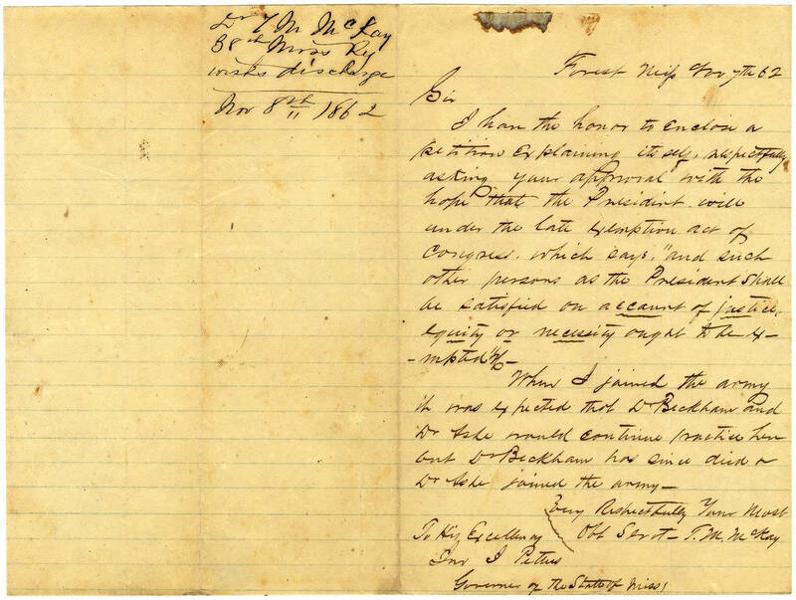 Dr T M McKay
38th Miss Reg
wishes discharge
Nov 8th 1862
Forest Miss Nov 7th 62
Sir
I have the honor to enclose a
petition explaining itself, respectfully
asking your approval with the
hope that the President will
under the late Exemption act of
Congress, which says, "and such
other persons as the President shall
be satisfied on account of justice,
equity or necessity ought to be ex-
-mpted"
When I joined the army
it was expected that Dr Beckham and
Dr Ashe would continue practice here
but Dr Beckham has since died &
Dr Ashe joined the army—
Very Respectfully Your Most
Obt Servt— T. M. McKay
To His Excellency
Jno J Pettus
Governor of the State of Miss